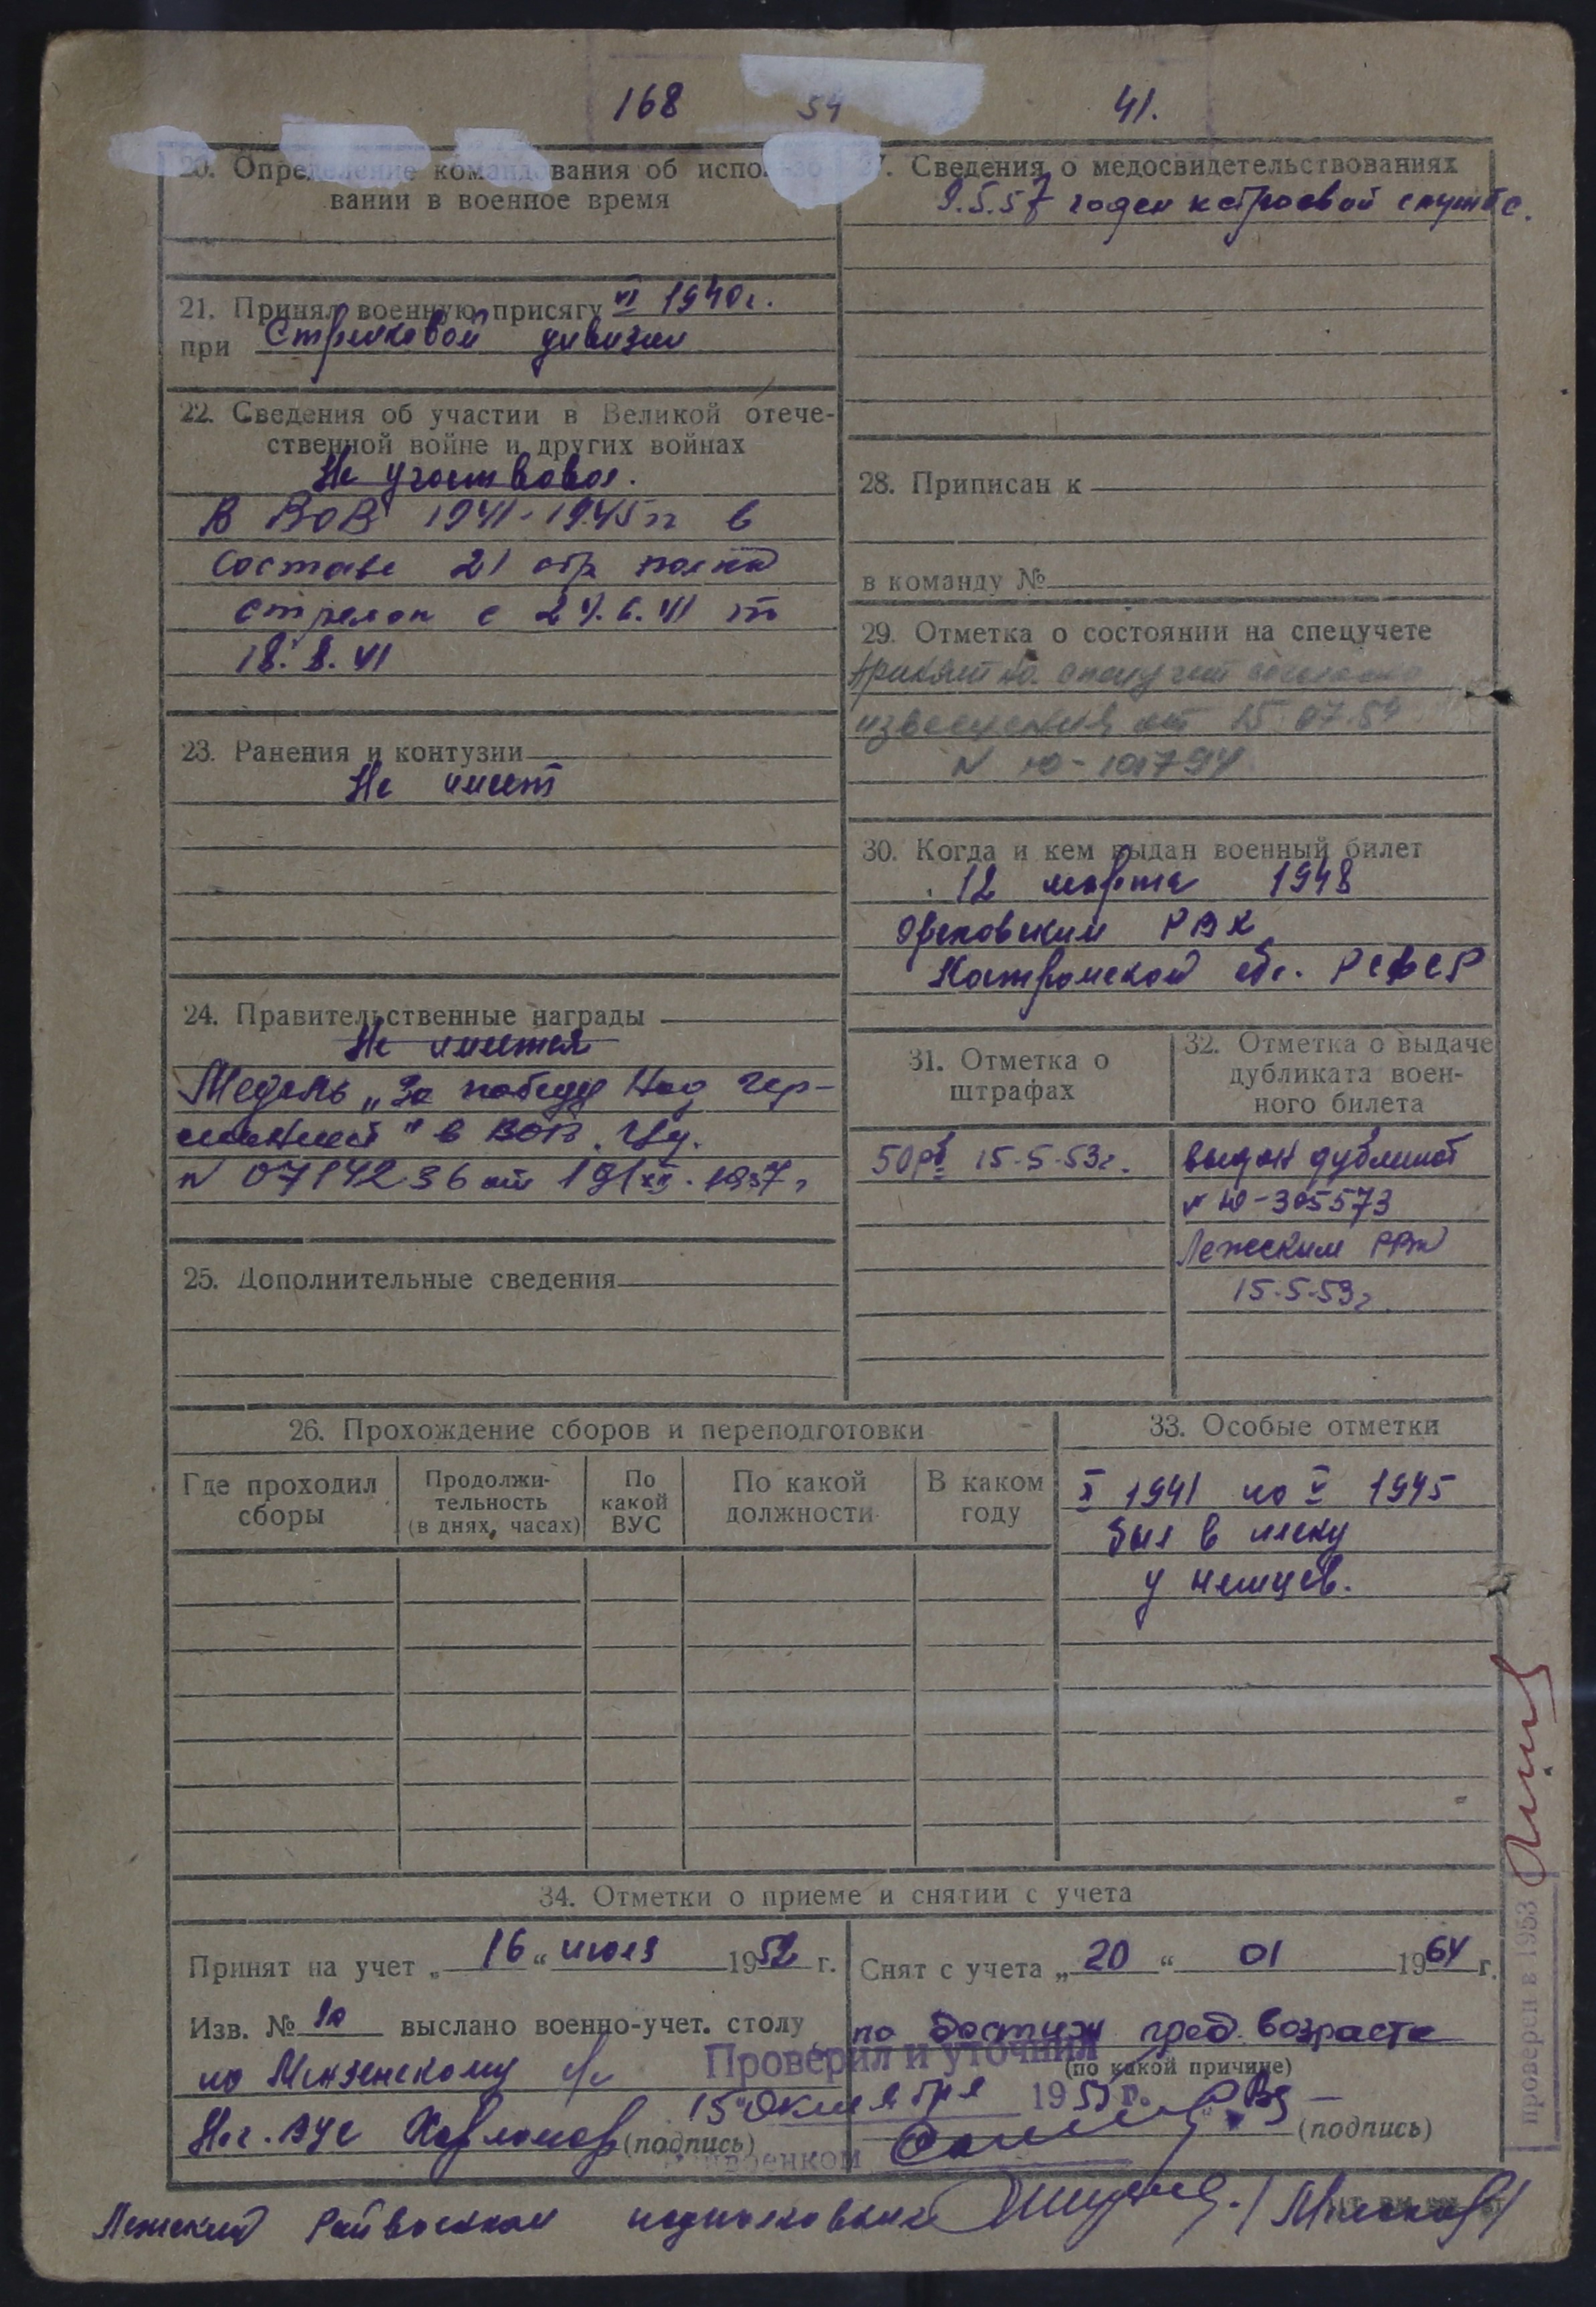 168 54 41.
20. Определение командования об использовании в военное время
21. Принял военную присягу VI 1940г.
при Стрелковой дивизии
22. Сведения об участии в Великой отече-
ственной войне и других войнах
Не участвовал.
В ВОВ 1941-1945 гг в
составе 21 стр полка
стрелок с
23. Ранения и контузии
Не имеет
24. Правительственные награды
Не имеется
Медаль „За победу Над Гер-
манией" в ВОВ. Уд.
N 0714236 от 1957 г
25. Дополнительные сведения
27. Сведения о медосвидетельствованиях
9.5.57 годен к строевой службе.
28. Приписан к
в команду №
29. Отметка о состоянии на спецучете
Принят на спецучет согласно
извещения от 15.07.54
N
30. Когда и кем выдан военный билет
12 марта 1948
РВК
Костромской обл. РСФСР
31. Отметка о
штрафах
50рб 15-5-53г.
32. Отметка о выдаче
дубликата воен-
ного билета
выдан дубликат
№ Ю-305573
Лежским РВК
15-5-53г
26. Прохождение сборов и переподготовки
Где проходил
сборы
Продолжи-
тельность
(в днях, часах)
По
какой
ВУС
По какой
должности
В каком
году
33. Особые отметки
X 1941 по V 1945
был в плену
у немцев.
34. Отметки о приеме и снятии с учета
Принят на учет „16“ июля 1952 г.
Изв. № выслано военно-учет. столу
по с/с
Нач. ВУС (подпись)
Снят с учета „20“ 01 1964 г.
по достиж пред. возраста
(по какой причине)
(подпись)
Проверил и уточнил
15 октября 195 г.
Райвоенком
проверен в 1953
Лежский Райвоенком подполковник